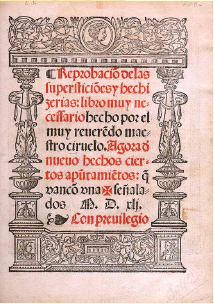 Reprobaciō delas
supersticiōes y hechi
zerias: libro muy ne-
cessario hecho por el
muy reuerēdo mae
stro ciruelo. Agora d̄
nueuo hechos cier-
tos apūtamiētos: q̄
vancō vna ✠ señala-
dos M. D. xlj.
Con preuilegio